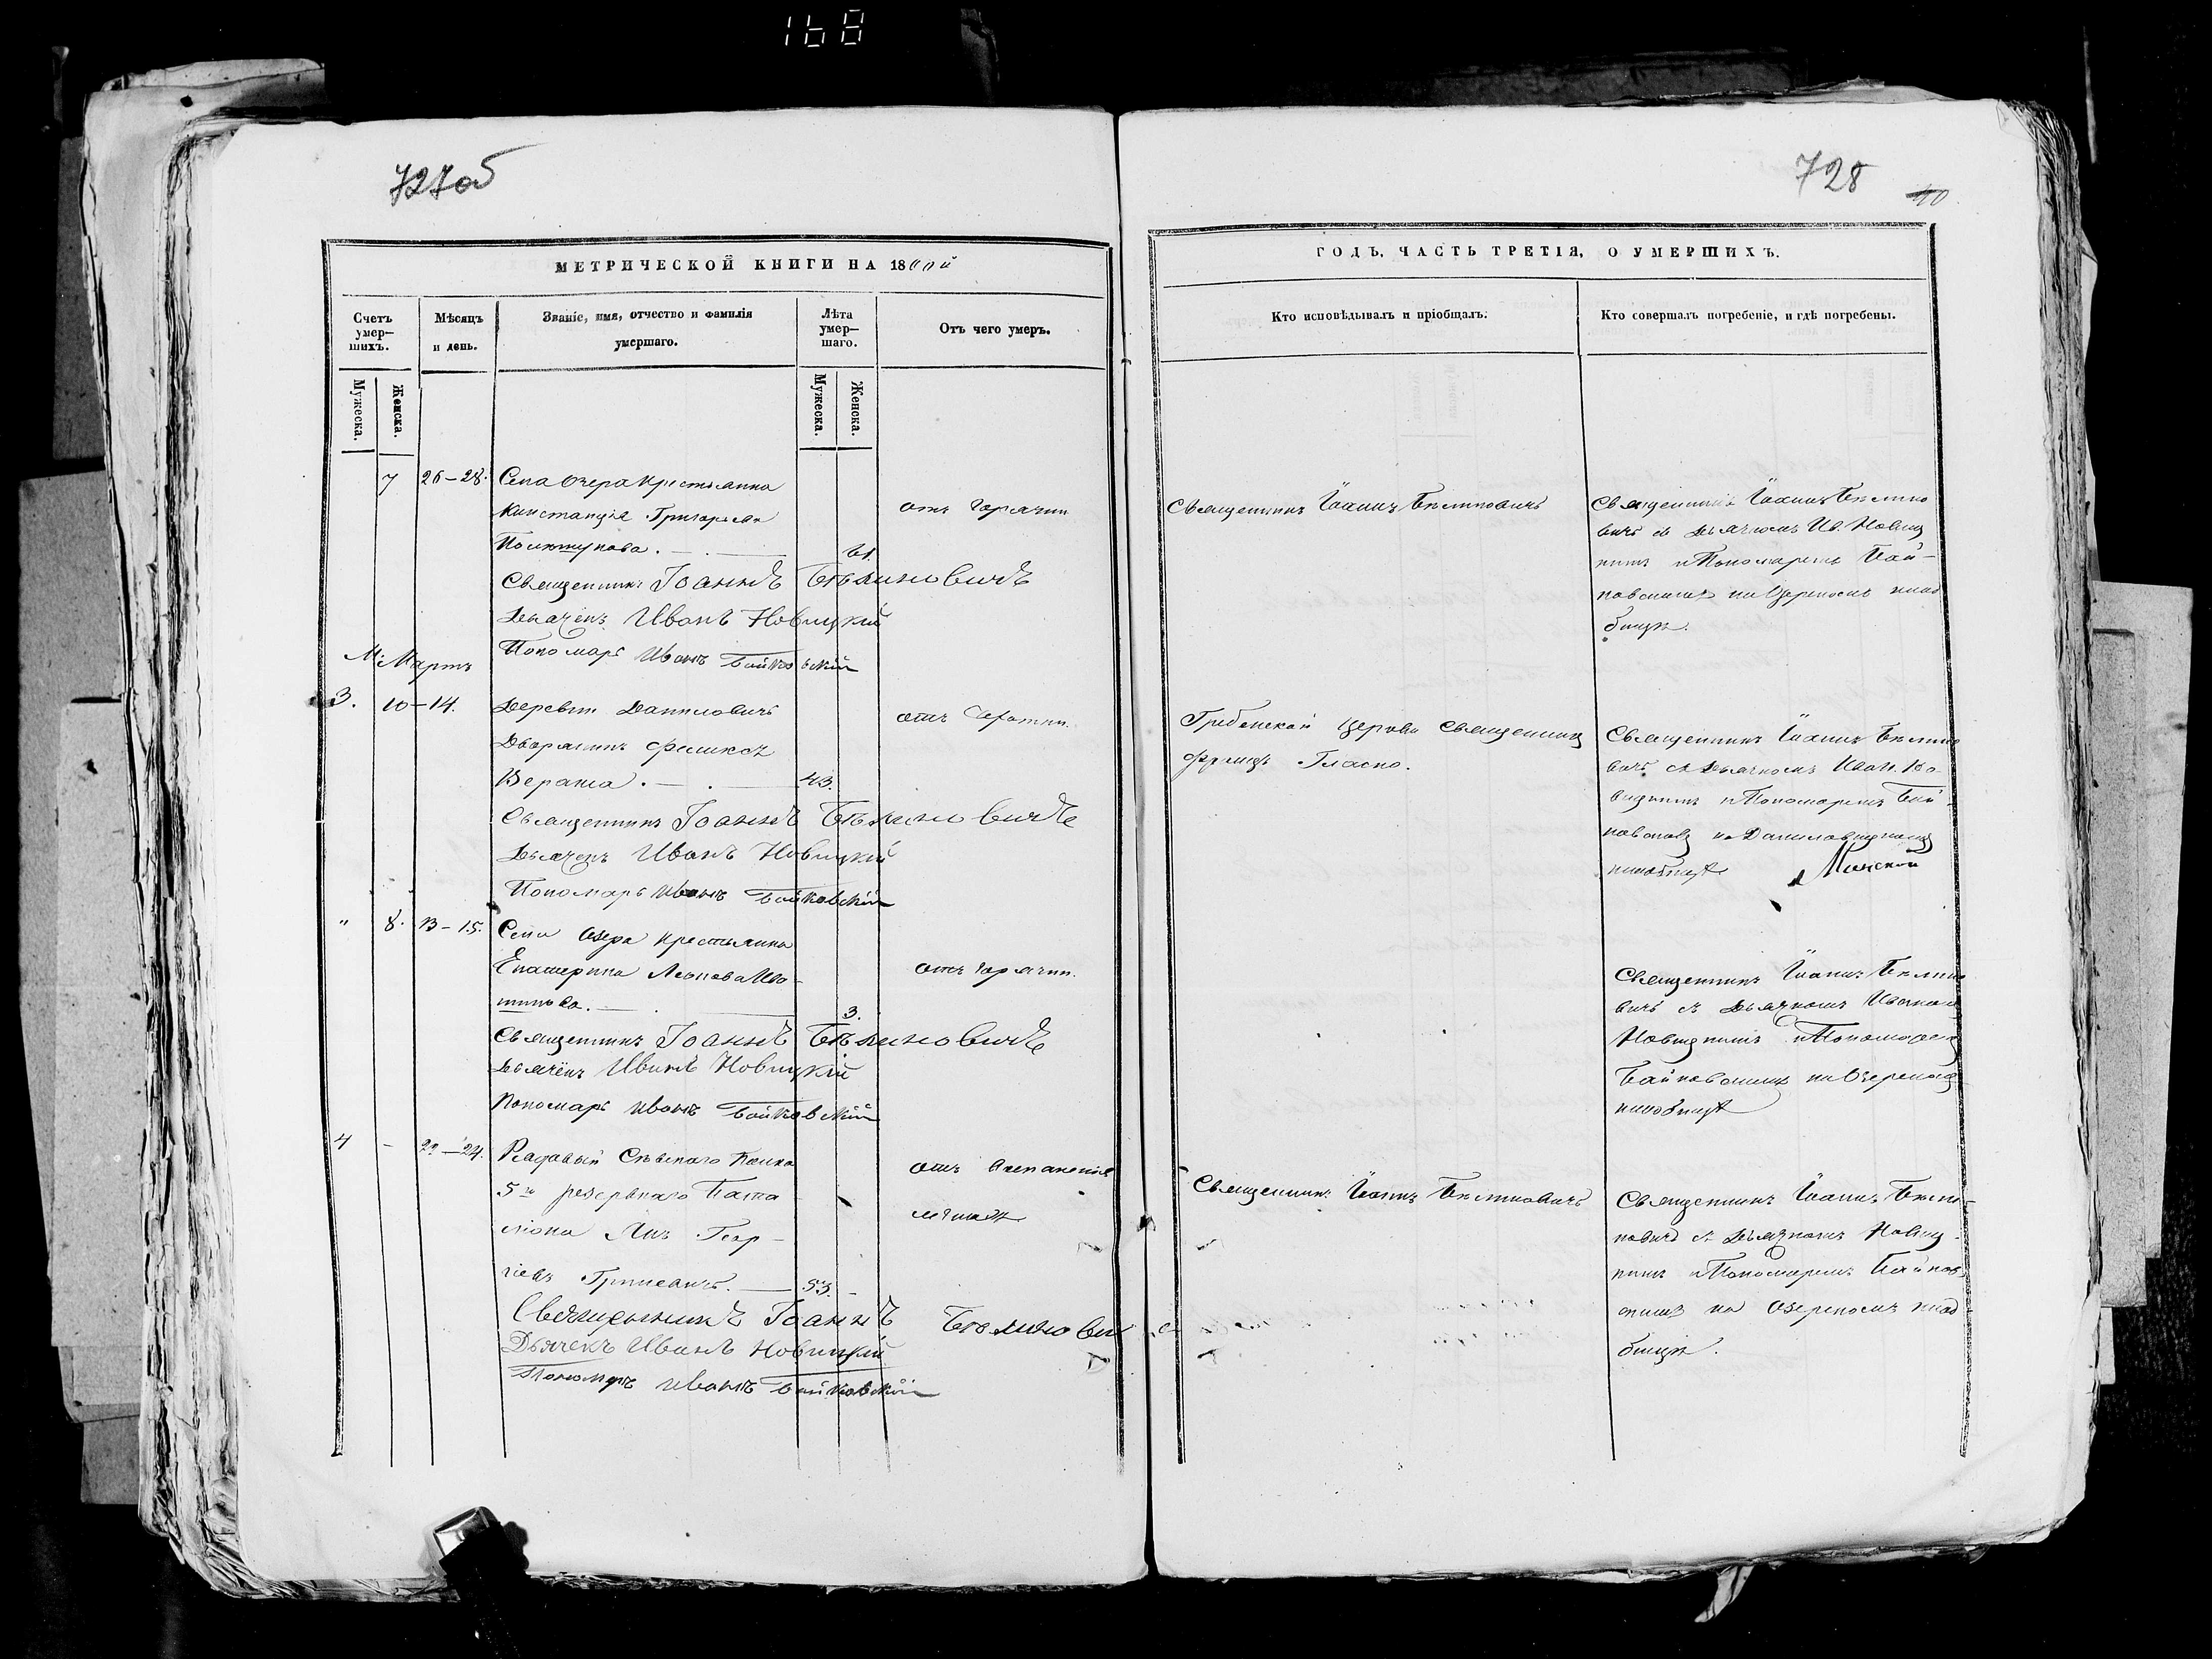 168
727об
МЕТРИЧЕСКОЙ КНИГИ НА 18
Счетъ умер-шихъ.
Мужеска.
Женска.
Мѣсяцъ и день.
Званіе, имя, отчество и фамилія умершаго.
Лѣта умер-шаго.
Мужеска.
Женска.
Отъ чего умеръ.
7 26-28. Села Озера крестьянка
Констанція Григорьева
61.
отъ горячки
Священникъ Іоаннъ Бѣлиновичъ
Дьячекъ Иванъ Новицкій
Пономарь Иванъ Байковскій
М. Мартъ
3. 10-14. Деревни Даниловичъ
Дворянинъ Феликсъ
43.
отъ
Священникъ Іоаннъ Бѣлиновичъ
Дьячекъ Иванъ Новицкій
Пономарь Иванъ Байковскій
" 8. 13-15. Села Озера крестьянка
Екатерина
3.
отъ горячки.
Священникъ Іоаннъ Бѣлиновичъ
Дьячекъ Иванъ Новицкій
Пономарь Иванъ Байковскій
4 - 22-24. Рядовый Сѣвскаго Полка
5го резервнаго Бата
ліона Янъ Геор-
гіевъ 53.
отъ воспаленія
Священникъ Іоаннъ Бѣлинович
Дьячекъ Иванъ Новицкій
Пономарь Иванъ Байковскій
728
40
ГОДЪ, ЧАСТЬ ТРЕТІЯ, О УМЕРШИХЪ.
Кто исповѣдывалъ и пріобщалъ.
Кто совершалъ погребеніе, и гдѣ погребены.
Священникъ Іоаннъ Бѣлиновичъ
Священникъ Іоаннъ Бѣлино
вичъ съ Дьячкомъ Ив. Новиц
кимъ и Пономаремъ Бай-
ковскимъ на Озерскомъ клад
бищѣ.
Гребенской Церкви Священникъ
Священникъ Іоаннъ Бѣлино
вичъ съ Дьячкомъ Иван. Но
вицкимъ и Пономаремъ Бай-
кладбищѣ
Священникъ Іоаннъ Бѣлино
вичъ съ Дьячкомъ Иваномъ
Новицкимъ и Пономаремъ
Байковскимъ на Озерскомъ
кладбищѣ
Священникъ Іоаннъ Бѣлиновичъ
Священникъ Іоаннъ Бѣли-
новичъ съ Дьячкомъ Новиц-
кимъ и Пономаремъ Байков-
скимъ на Озерскомъ клад-
бищѣ.